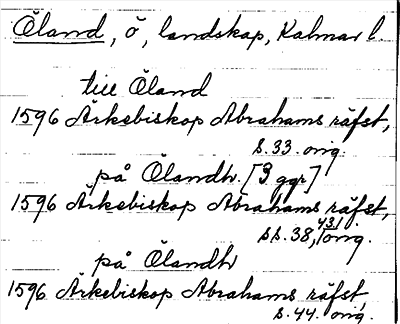 Öland, ö, landskap, Kalmar l.
till Öland
1596 Ärkebiskop Abrahams räfst,
s. 33. orig.
på Ölandh. [3 ggr]
1596 Ärkebiskop Abrahams räfst,
ss. 38, 43, orig.
på Ölandh
1596 Ärkebiskop Abrahams räfst,
s. 44. orig.